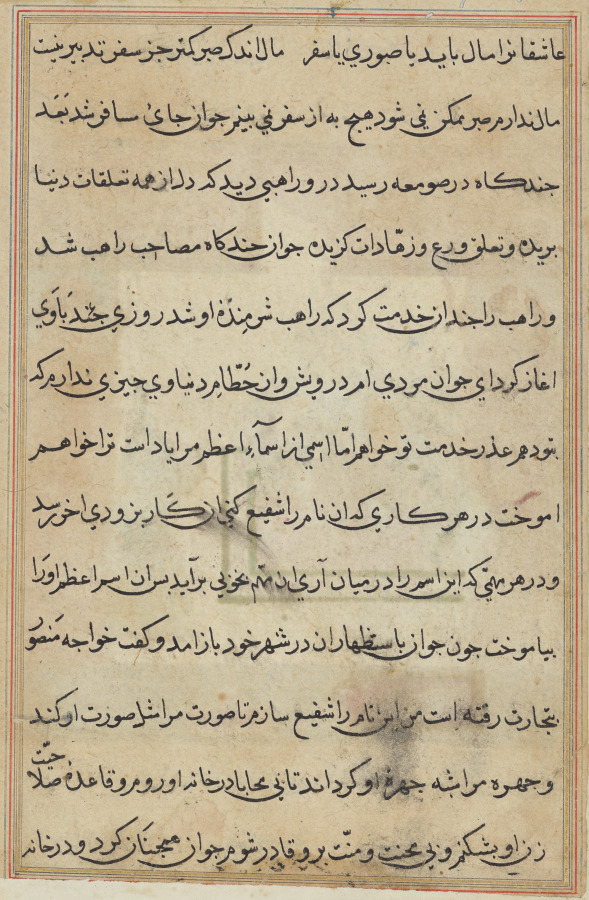 عاشقانرا مال باید یا صبوری یا سفر مال اندک صبر کمتر جز سفر تدبیر نیست
مال ندارم صبر ممکن نی شود هیچ به از سفر نمی بینم جوان جائ مسافر شد بَعَد
جندکاه در صومعه رسید در و راهبی دید که دل از همه تعلقات دنیا
بریده و تعلق ورع و زهّادات کزیده جوان جندکاه مصاحب راهب شد
و راهب را جندان خدمت کرد که راهب شرمِندَهٔ او شد روزی جند باوَی
اغاز کرد ای جوان مردی ام درویش و از حُطّام دنیاوی جیزی ندارم که
بتو دهم عذر خدمت تو خواهم امّا اسمی از اسمآء اعظم مرا یاد است ترا خواهم
اموخت در هر کاری که ان نام را شفیع کنی ان کار بزودی اخر رسد
و در هر مهمّی که این اسم را درمیان آری ان مهّم بخوبی برآید بس ان اسم اعظم اورَا
بیاموخت جون جوان باستظهار ان در شهر خود باز امد و کفت خواجه مَنصُور
بتجارت رفته است من این نام را شفیع سازم تا صورت مرا مثل صورت او کند
و جهره مرا شبه جهرهٔ او کرداند تا بی محابا در خانه او روم و قاعدهٔ صلاحیّت
زن او بشکنم و بی محنت و منّت برو قادر شوم جوان همجنَان کرد و در خانه